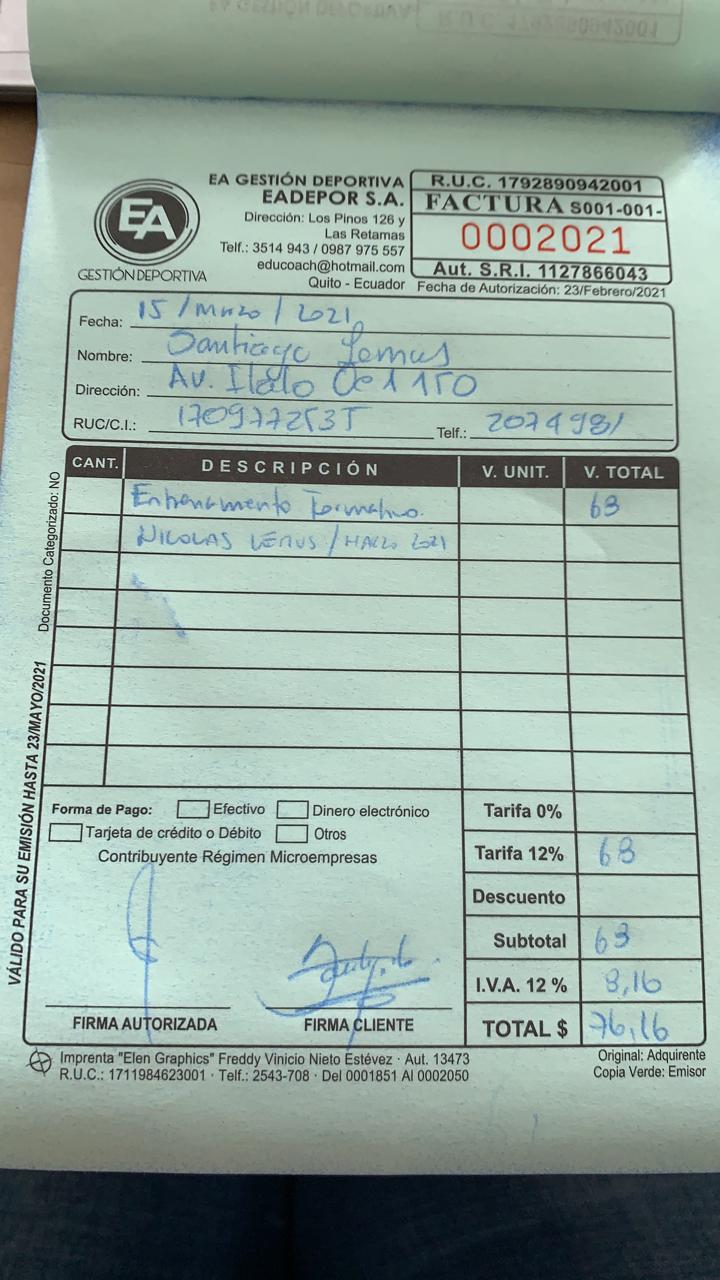 EA GESTIÓN DEPORTIVA
R.U.C. 1792890942001
EA
GESTIÓN DEPORTIVA
EA GESTIÓN DEPORTIVA
EADEPOR S.A.
Dirección: Los Pinos 126 y
Las Retamas
Telf.: 3514 943 / 0987 975 557
educoach@hotmail.com
Quito - Ecuador
R.U.C. 1792890942001
FACTURA S001-001-
0002021
Aut. S.R.I. 1127866043
Fecha de Autorización: 23/Febrero/2021
Fecha: 15 / marzo / 2021
Nombre: Santiago Lemus
Dirección: Av. Ilalo Oe1 150
RUC/C.I.:
Telf.: 2074981
CANT. DESCRIPCIÓN V. UNIT. V. TOTAL
Entrenamiento Formativo. 68
NICOLAS LEMUS / MARZO 2021
Documento Categorizado: NO
VÁLIDO PARA SU EMISIÓN HASTA 23/MAYO/2021
Forma de Pago: Efectivo Dinero electrónico
Tarjeta de crédito o Débito Otros
Contribuyente Régimen Microempresas
Tarifa 0%
Tarifa 12% 68
Descuento
Subtotal 68
I.V.A. 12 % 8,16
TOTAL $ 76,16
FIRMA AUTORIZADA FIRMA CLIENTE
Imprenta "Elen Graphics" Freddy Vinicio Nieto Estévez · Aut. 13473
R.U.C.: 1711984623001 · Telf.: 2543-708 · Del 0001851 Al 0002050
Original: Adquirente
Copia Verde: Emisor